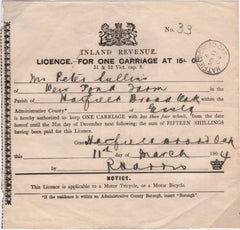 No. 33
INLAND REVENUE.
LICENCE FOR ONE CARRIAGE AT 15s. 0d.
51 & 52 Vict. cap. 8.
Mr Peter Cullins
of New Pond Farm
in the Parish of Hatfield Broad Oak
within the Administrative County* of Essex
is hereby authorized to keep ONE CARRIAGE with less than four wheels, from the date
hereof until the 31st day of December next following; the sum of FIFTEEN SHILLINGS
having been paid for this Licence.
Granted at Hatfield Broad Oak
this 11th day of March 1904
by R Harris
NOTICE.
This Licence is applicable to a Motor Tricycle, or a Motor Bicycle.
* If the residence is within an Administrative County Borough, insert "Borough."